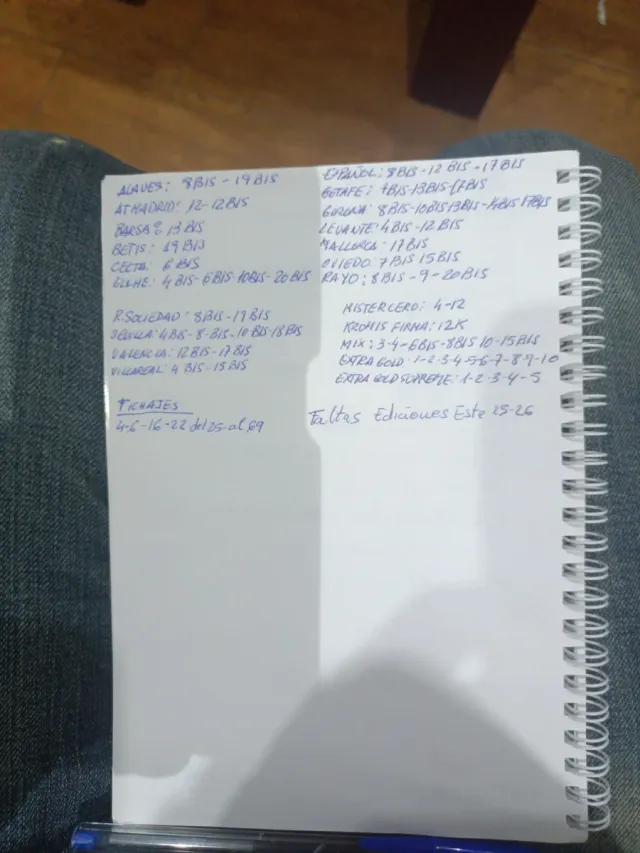 ALAVES: 8BIS - 19BIS
AT MADRID: 12-12BIS
BARSA: 13 BIS
BETIS: 19 BIS
CELTA: 6 BIS
ELCHE: 4 BIS-6BIS-10BIS-20BIS
R.SOCIEDAD: 8BIS-19BIS
SEVILLA: 4BIS-8-BIS-10 BIS-18BIS
VALENCIA: 12BIS-17BIS
VILLAREAL: 4 BIS-15BIS
FICHAJES
4-6-16-22 del 25 al 69
ESPAÑOL: 8BIS-12 BIS-17BIS
GETAFE: 4BIS-13BIS-17BIS
GIRONA: 8BIS-10BIS 13BIS-14BIS 17BIS
LEVANTE: 4BIS-12BIS
MALLORCA: 17BIS
OVIEDO: 7BIS 15BIS
RAYO: 8BIS-9-20BIS
MISTER CERO: 4-12
KROMIS FIRMA: 12K
MIX: 3-4-6BIS-8BIS 10-15BIS
EXTRA GOLD: 1-2-3-4-5-6-7-8-9-10
EXTRA GOLD SUPREME: 1-2-3-4-5
Faltas Ediciones Este 25-26